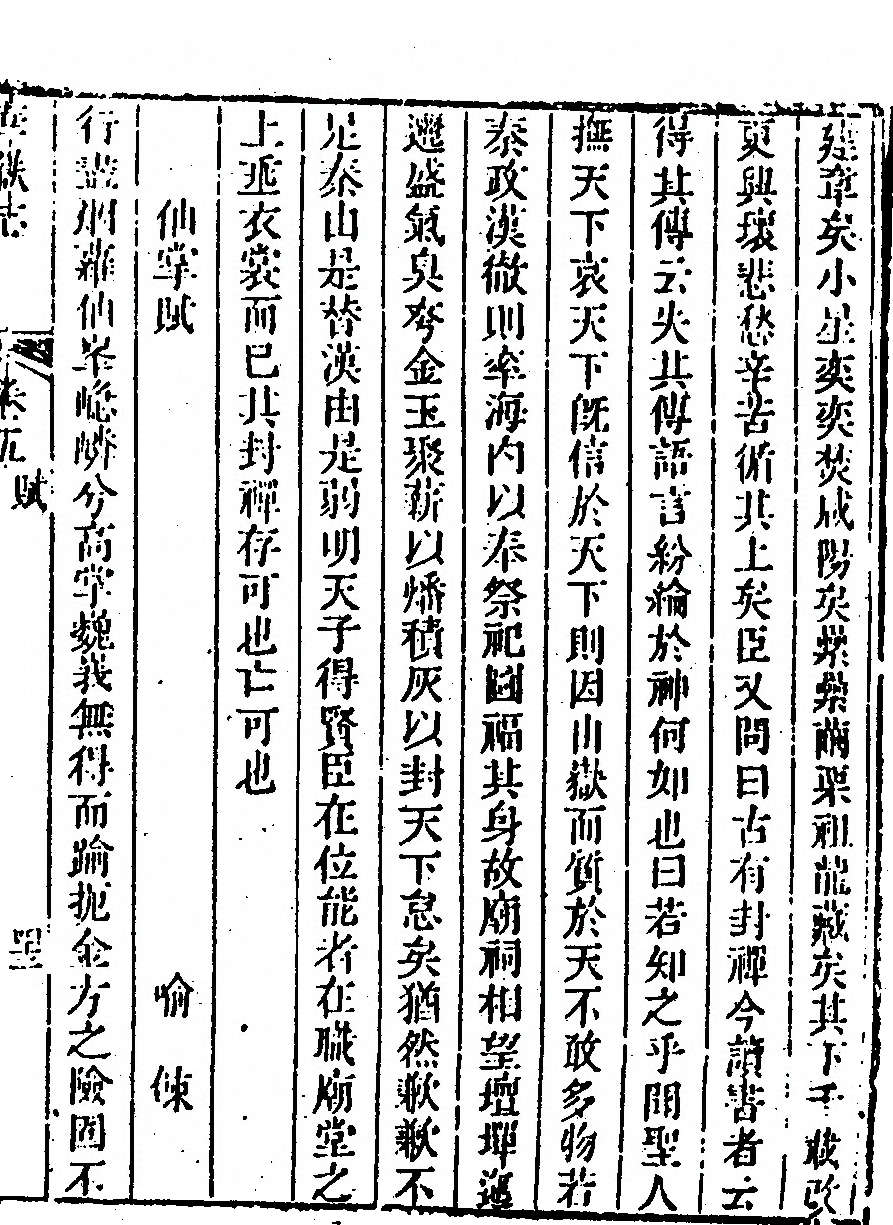 建章矣小星奕奕焚咸陽矣纍纍繭栗祖龍藏矣其下千載改
更興壞悲愁辛苦循其上矣臣又問曰古有封禪今讀書者云
得其傳云失其傳語言紛綸於神何如也曰若知之乎聞聖人
撫天下哀天下既信於天下則因山嶽而質於天不敢多物若
秦政漢徹則率海內以奉祭祀圖福其身故廟祠相望壇墠逦
迤盛氣臭夸金玉聚薪以燔積灰以封天下怠矣猶然歉歉不
足秦由是替漢由是弱明天子得賢臣在位能者在職廟堂之
上垂衣裳而已其封禪存可也亡可也
仙掌賦
喻 㑛
行盡烟蘿仙峯嶾嶙兮高掌巍峩無得而踰扼金方之險固不
華嶽志
卷五
賦